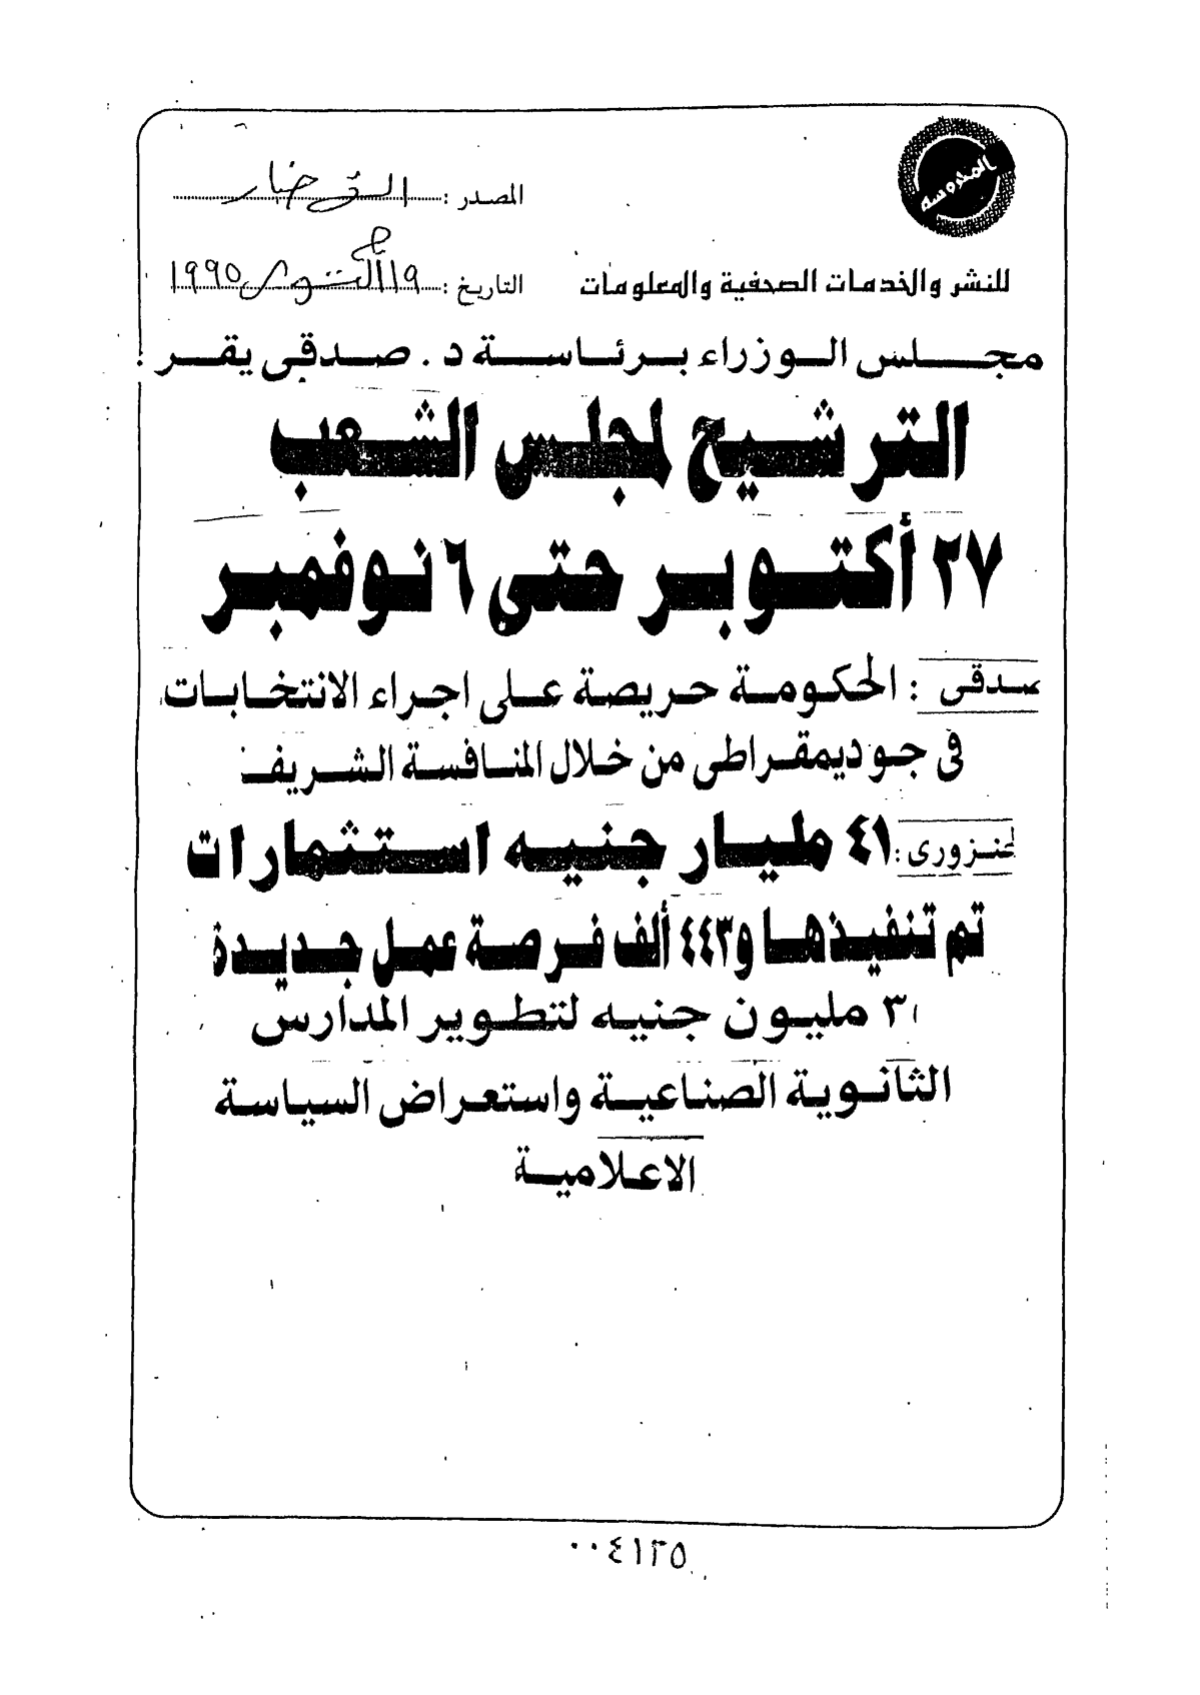 المدوسة
المصدر : الأخبار
للنشر والخدمات الصحفية والمعلومات
التاريخ : ١٩ أكتوبر ١٩٩٥
مجلس الوزراء برئاسة د . صدقى يقر :
الترشيح لمجلس الشعب
٢٧ أكتوبر حتى ٦ نوفمبر
صدقى : الحكومة حريصة على اجراء الانتخابات
فى جو ديمقراطى من خلال المنافسة الشريفة
الجنزورى : ٤١ مليار جنيه استثمارات
تم تنفيذها و٤٤٣ ألف فرصة عمل جديدة
مليون جنيه لتطوير المدارس
الثانوية الصناعية واستعراض السياسة
الاعلامية
٠٠٤١٢٥